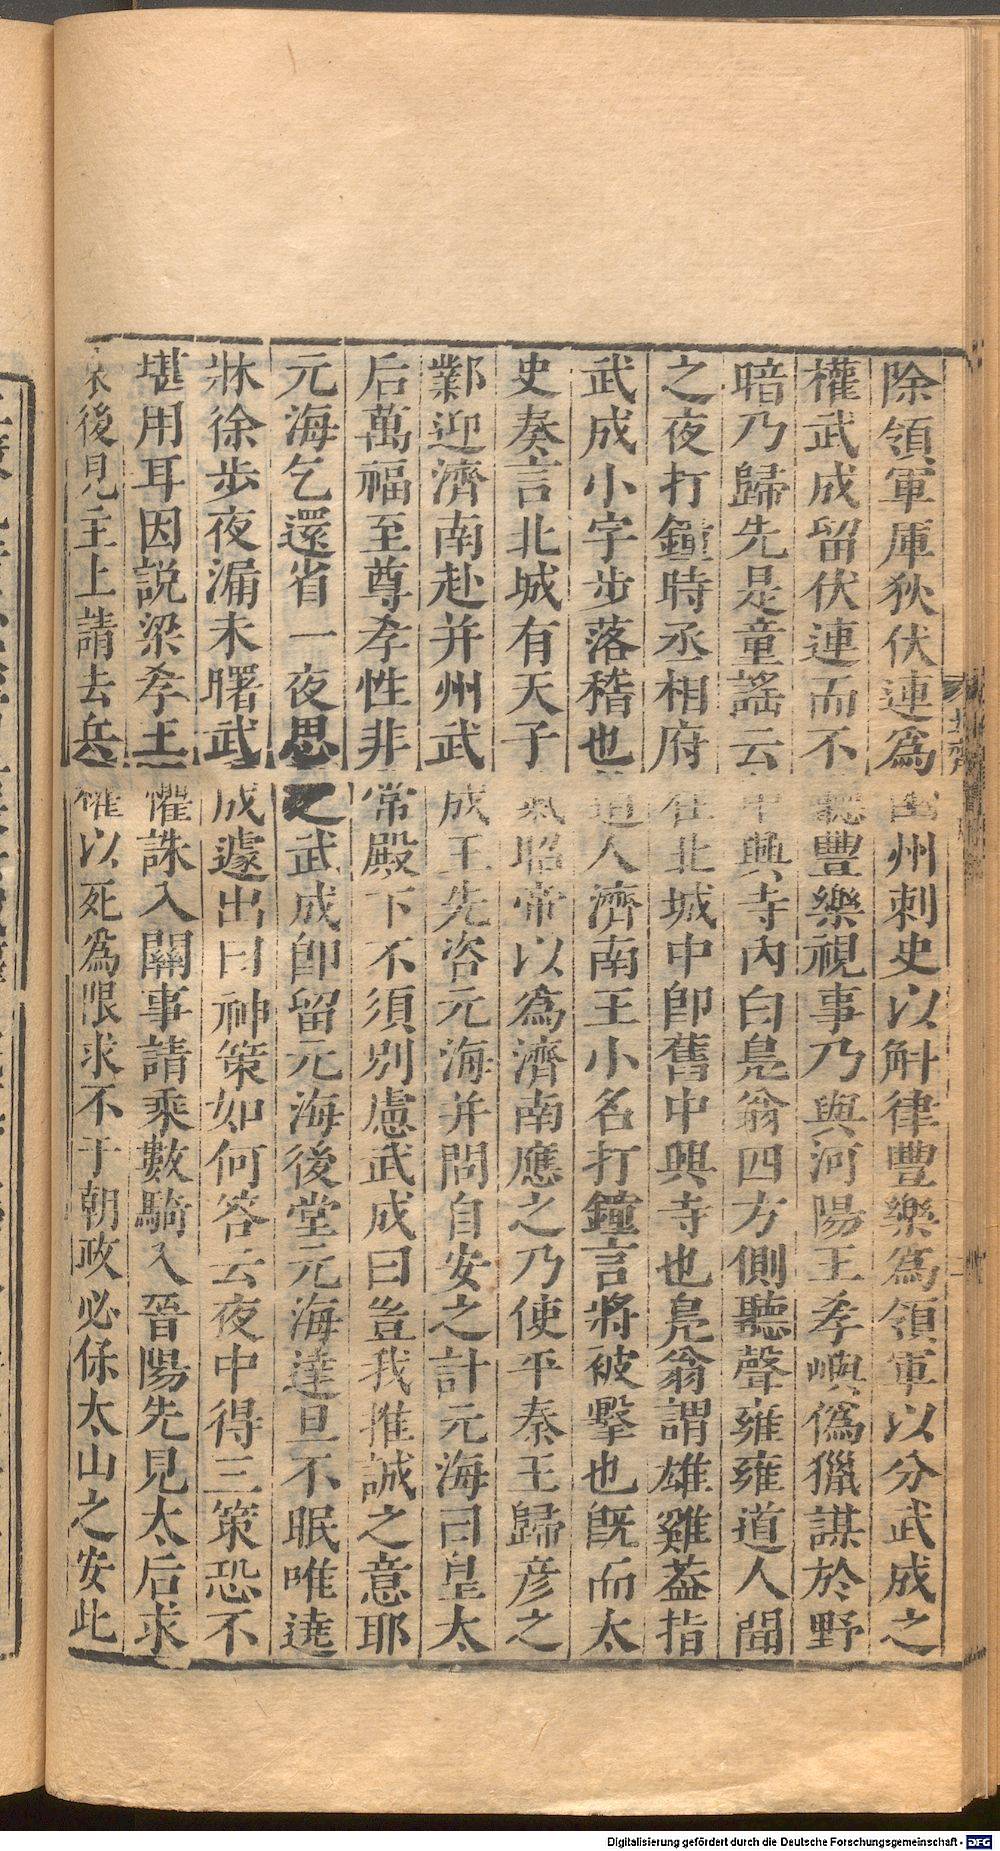 除領軍厙狄伏連爲幽州刺史以斛律豐樂爲領軍以分武成之
權武成留伏連而不聽豐樂視事乃與河陽王孝嶼僞獵謀於野
暗乃歸先是童謡云中興寺内白鳧翁四方側聽聲雍雍道人聞
之夜打鐘時丞相府在北城中卽舊中興寺也鳧翁謂雄雞蓋指
武成小字步落稽也道人濟南王小名打鐘言將被擊也旣而太
史奏言北城有天子氣昭帝以爲濟南應之乃使平秦王歸彦之
鄴迎濟南赴并州武成王先咨元海并問自安之計元海曰皇太
后萬福至尊孝性非常殿下不須别慮武成曰豈我推誠之意耶
元海乞還省一夜思之武成卽留元海後堂元海達旦不眠唯遶
牀徐步夜漏未曙武成遽出曰神策如何答云夜中得三策恐不
堪用耳因説梁孝王懼誅入關事請乘數騎入晉陽先見太后求
後見主上請去兵權以死爲限求不干朝政必保太山之安此
北齊
Digitalisierung gefördert durch die Deutsche Forschungsgemeinschaft - DFG